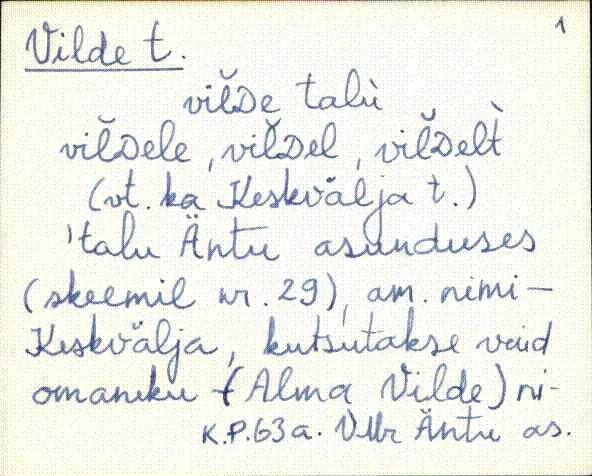 1
Vilde t.
vil̆De talù
vil̆Dele, vil̆Del, vil̆Delt̀
(vt. ka Keskvälja t.)
'talu Äntu asunduses
(skeemil nr. 29), am. nimi-
Keskvälja, kutsutakse vaid
omaniku (Alma Vilde) ni-
K.P.63a. VMr Äntu as.